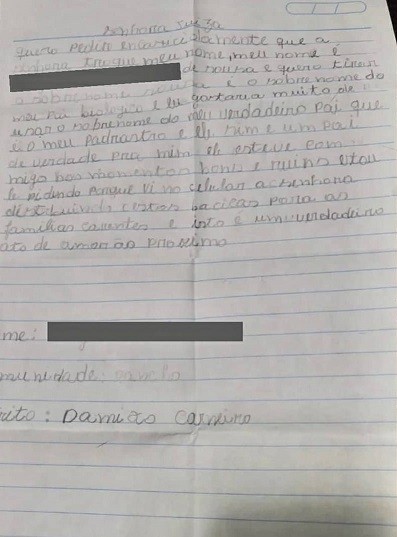 senhora juiza
quero pedir encarecidamente que a
senhora troque meu nome, meu nome é
de sousa e quero tirar
o sobrenome sousa é o sobrenome do
meu pai biologico e eu gostaria muito de
usar o sobrenome do meu verdadeiro pai que
é o meu padrastro e ele sim e um pai
de verdade pra mim ele esteve com
migo nos momentos bons e ruins estou
le pedindo porque vi no celular a senhora
distribuindo cestas bacicas para as
familias carentes e isto é um verdadeiro
ato de amor ão proximo
me:
munidade:
rito: Damião Carneiro